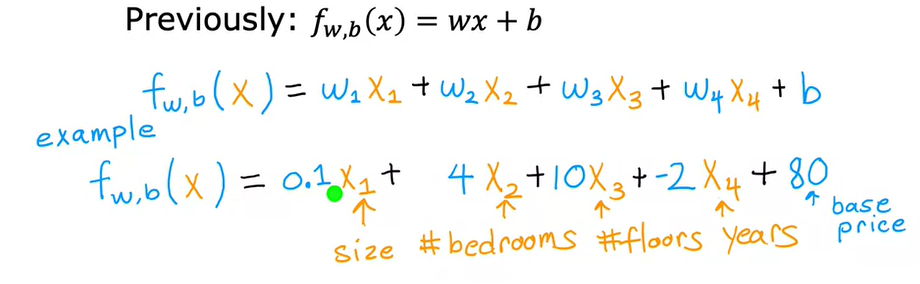 Previously: f_{w,b}(x) = wx + b
f_{w,b}(x) = w₁x₁ + w₂x₂ + w₃x₃ + w₄x₄ + b
example
f_{w,b}(x) = 0.1x₁ + 4x₂ + 10x₃ + -2x₄ + 80
size #bedrooms #floors years base price